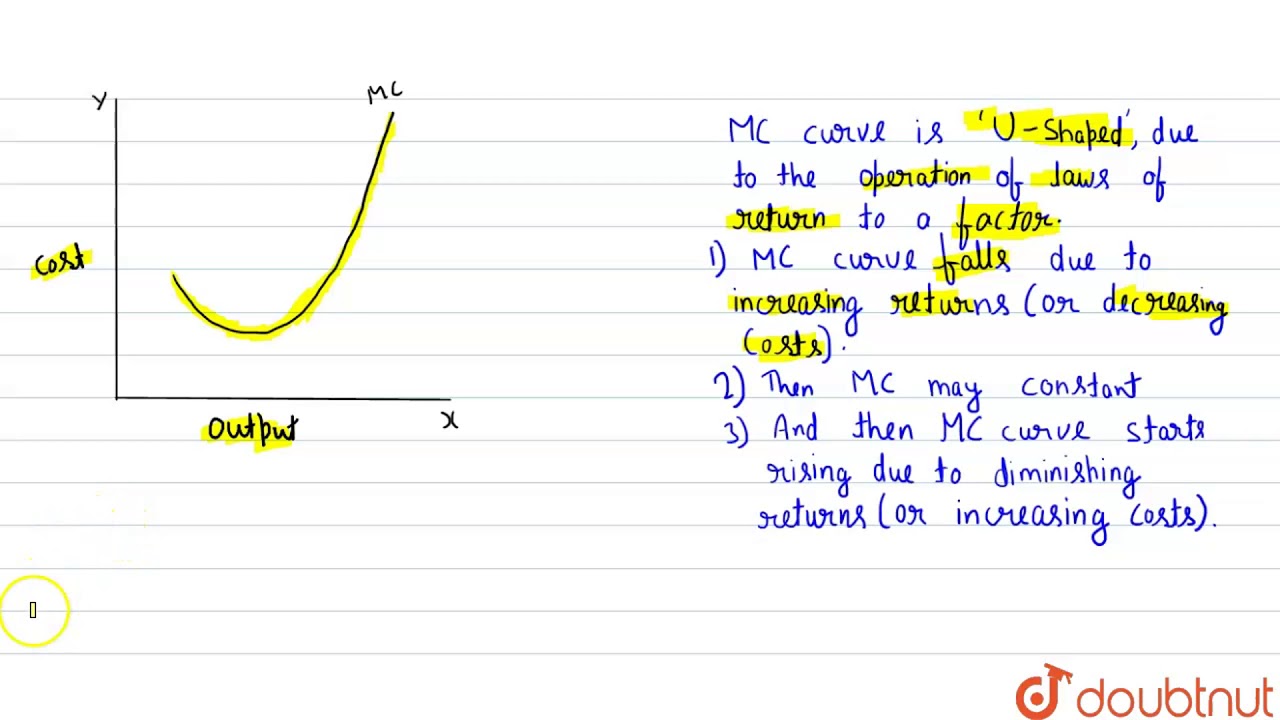 Y
MC
Cost
Output
X
MC curve is 'U-Shaped', due
to the operation of laws of
return to a factor.
1) MC curve falls due to
increasing returns (or decreasing
Costs).
2) Then MC may constant
3) And then MC curve starts
rising due to diminishing
returns (or increasing costs).
doubtnut